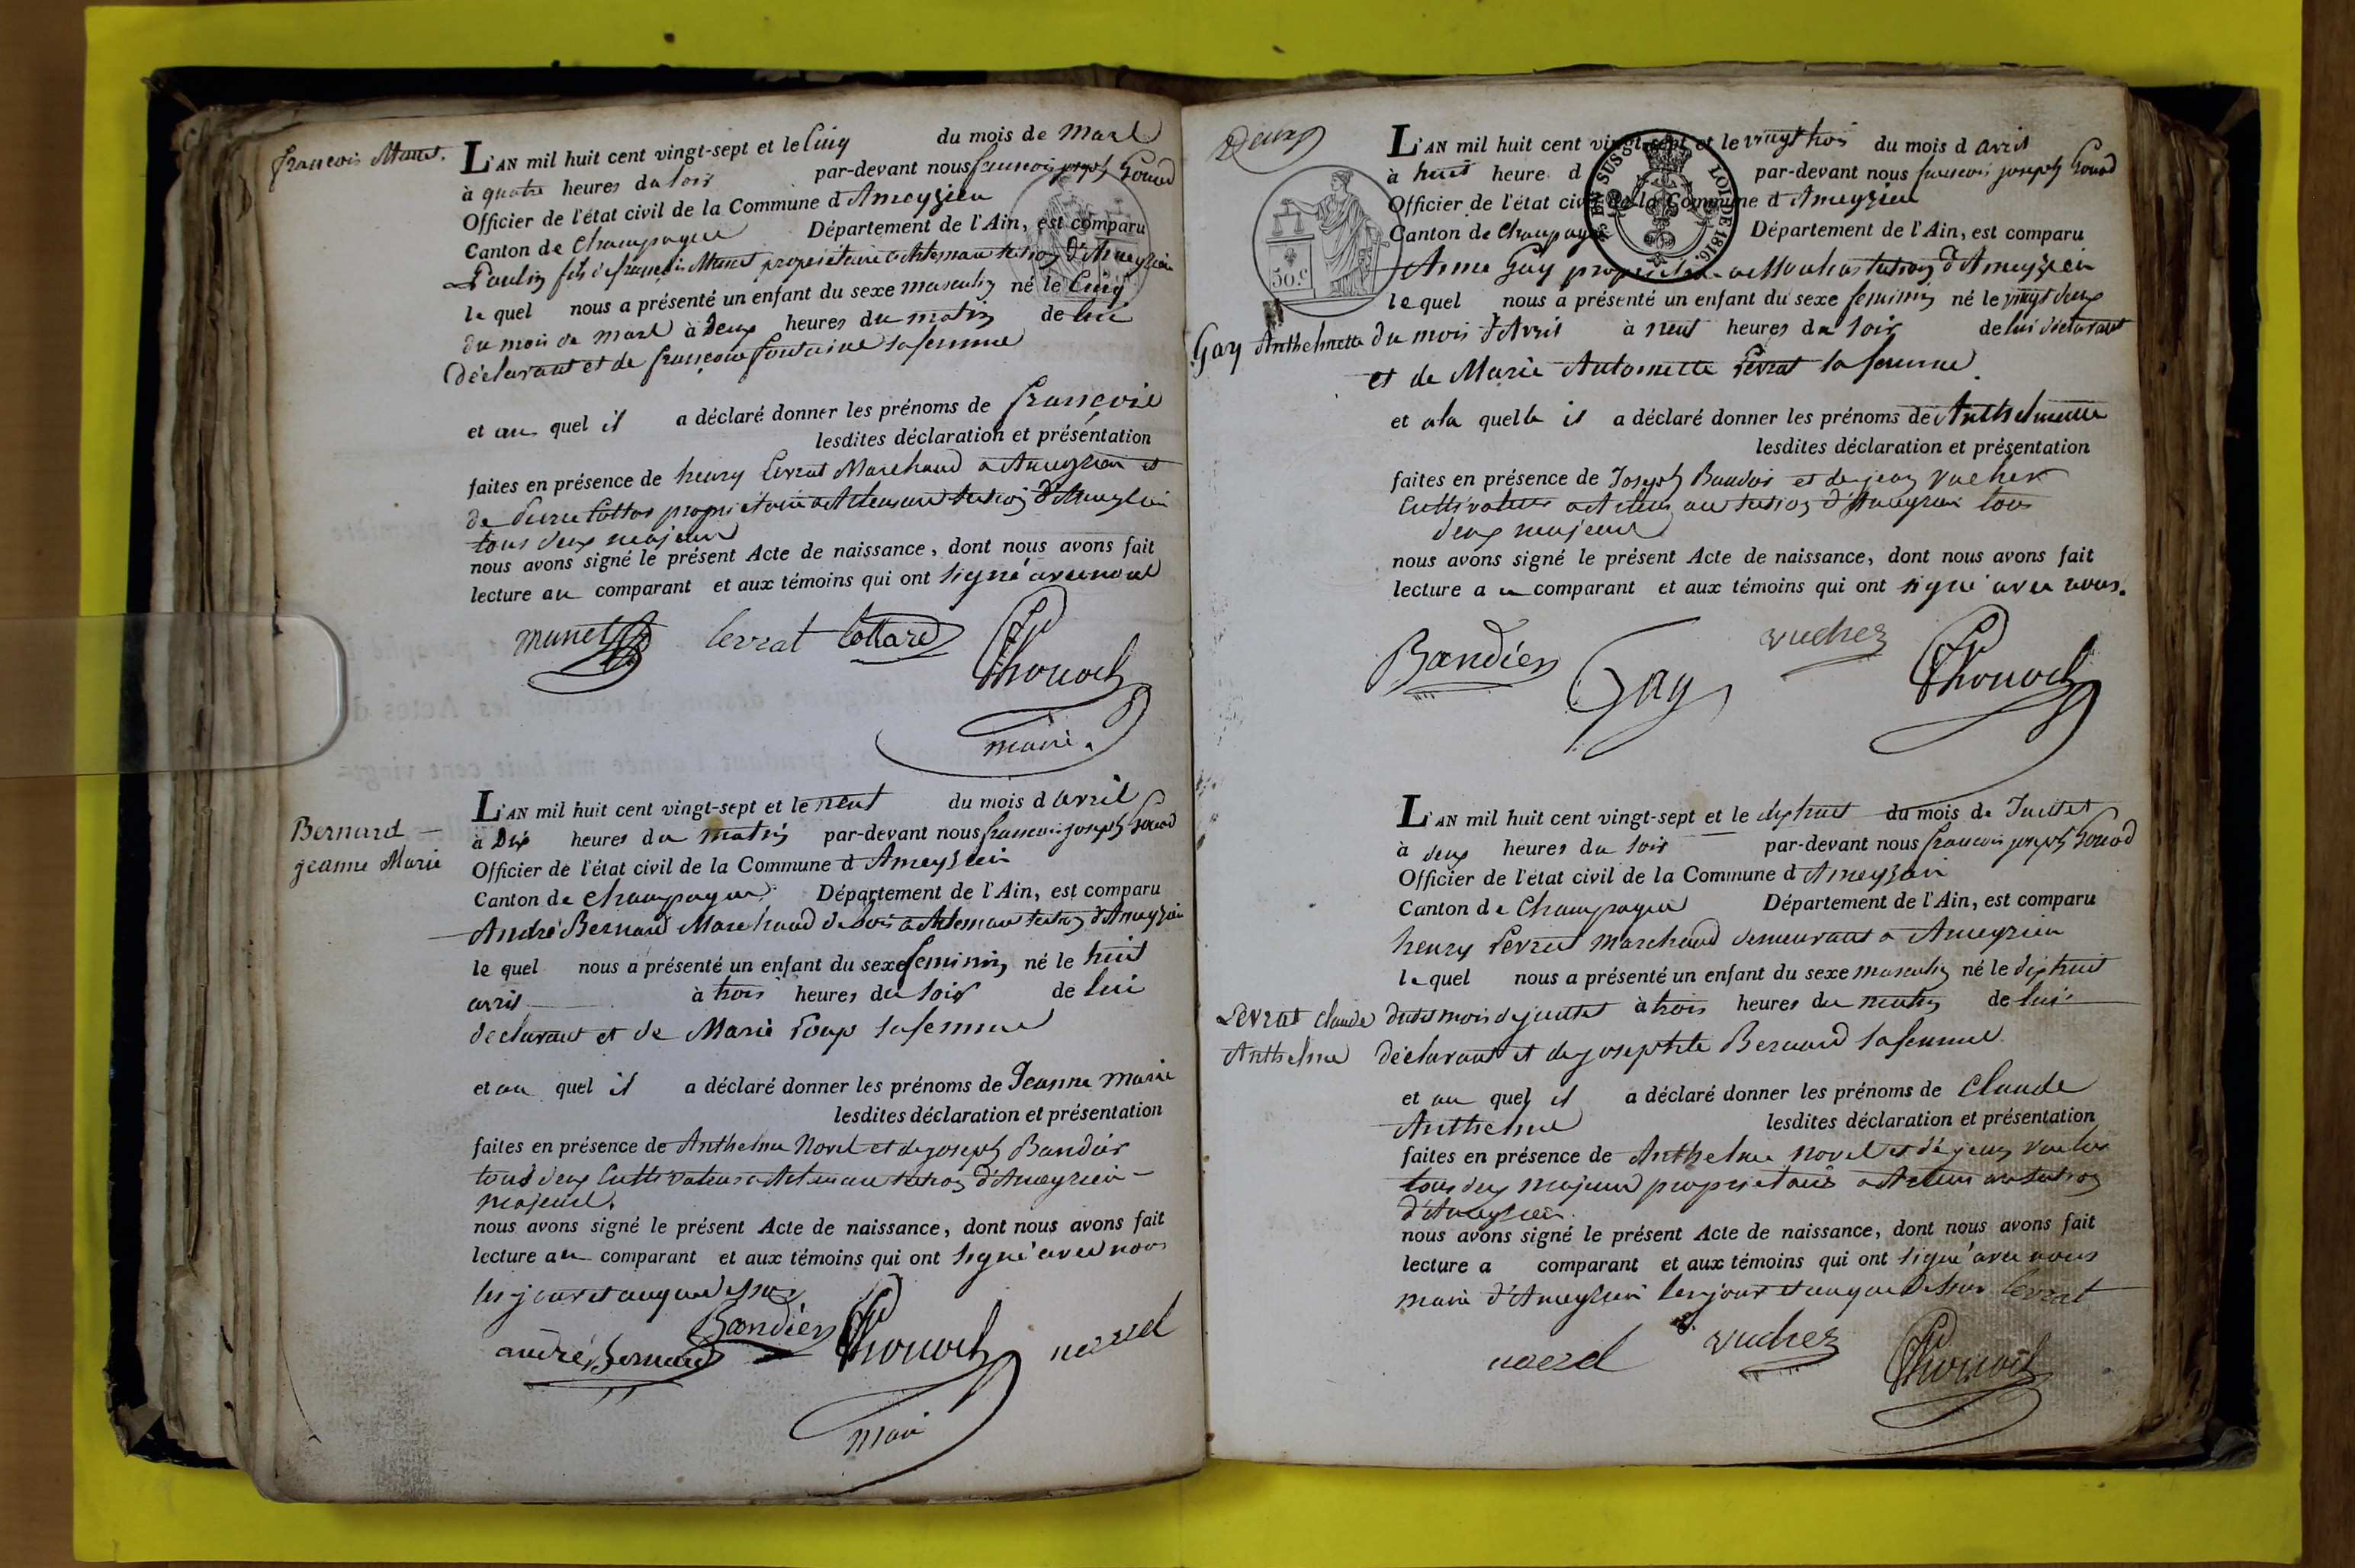 françois Munet.
L'AN mil huit cent vingt-sept et le Cinq du mois de Mars
à quatre heures du soir par-devant nous françois joseph Gonod
Officier de l'état civil de la Commune d'Ameyzieu
Canton de Champagne Département de l'Ain, est comparu
Paulin fils de françois Munet propriétaire d'Ameyzieu
le quel nous a présenté un enfant du sexe masculin né le Cinq
du mois de mars à deux heures du matin de lui
déclarant et de françoise fontaine sa femme
et au quel il a déclaré donner les prénoms de françois
lesdites déclaration et présentation
faites en présence de henry Levrat Marchand à Ameyzieu et
de Pierre Cottar propriétaire d'Ameyzieu
tous deux majeurs
nous avons signé le présent Acte de naissance, dont nous avons fait
lecture au comparant et aux témoins qui ont signé avec nous
munet levrat Cottard
maire.
Bernard
jeanne Marie
L'AN mil huit cent vingt-sept et le neuf du mois d avril
à Dix heures du matin par-devant nous françois joseph Gonod
Officier de l'état civil de la Commune d'Ameyzieu
Canton de Champagne Département de l'Ain, est comparu
André Bernard Marchand de bois d'Ameyzieu
le quel nous a présenté un enfant du sexe feminin né le huit
avril à trois heures du soir de lui
déclarant et de Marie Loup sa femme
et au quel il a déclaré donner les prénoms de Jeanne marie
lesdites déclaration et présentation
faites en présence de Anthelme Novel et de joseph Baudin
tous deux Cultivateurs d'Ameyzieu
majeurs.
nous avons signé le présent Acte de naissance, dont nous avons fait
lecture au comparant et aux témoins qui ont signé avec nous
les jour et an que dessus
andré Bernard novel
maire
Deux
50.c
EN SUS LOI DE 1816.
L'AN mil huit cent vingt-sept et le vingt trois du mois d avril
à huit heure d par-devant nous françois joseph Gonod
Officier de l'état civil de la Commune d'Ameyzieu
Canton de Champagne Département de l'Ain, est comparu
Anme Gay d'Ameyzieu
le quel nous a présenté un enfant du sexe feminin né le vingt deux
Gay Anthelmette du mois d'Avril à neuf heures du soir de lui déclarant
et de Marie Antoinette Levrat sa femme.
et à la quelle il a déclaré donner les prénoms de Anthelmette
lesdites déclaration et présentation
faites en présence de Joseph Baudin et de jean Vucher
Cultivateurs d'Ameyzieu tous
deux majeurs
nous avons signé le présent Acte de naissance, dont nous avons fait
lecture a u comparant et aux témoins qui ont signé avec nous.
Gay vucher
L'AN mil huit cent vingt-sept et le dix huit du mois de Juillet
à deux heures du soir par-devant nous françois joseph Gonod
Officier de l'état civil de la Commune d'Ameyzieu
Canton de Champagne Département de l'Ain, est comparu
henry Levrat marchand demeurant à Ameyzieu
le quel nous a présenté un enfant du sexe masculin né le dix huit
Levrat Claude dudit mois de juillet à trois heures du matin de lui
Anthelme déclarant et de josephte Bernard sa femme.
et au quel il a déclaré donner les prénoms de Claude
Anthelme lesdites déclaration et présentation
faites en présence de Anthelme novel et de jean Vucher
tous deux majeurs propriétaires
d'Ameyzieu.
nous avons signé le présent Acte de naissance, dont nous avons fait
lecture a comparant et aux témoins qui ont signé avec nous
maire d'Ameyzieu les jour et an que dessus levrat
novel vucher